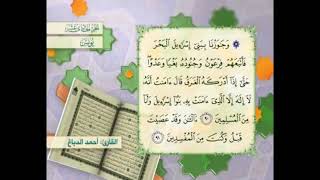 وَجَٰوَزْنَا بِبَنِىٓ إِسْرَٰٓءِيلَ ٱلْبَحْرَ
فَأَتْبَعَهُمْ فِرْعَوْنُ وَجُنُودُهُۥ بَغْيًا وَعَدْوًا
حَتَّىٰٓ إِذَآ أَدْرَكَهُ ٱلْغَرَقُ قَالَ ءَامَنتُ أَنَّهُۥ
لَآ إِلَٰهَ إِلَّا ٱلَّذِىٓ ءَامَنَتْ بِهِۦ بَنُوٓا۟ إِسْرَٰٓءِيلَ وَأَنَا۠
مِنَ ٱلْمُسْلِمِينَ ٩٠ ءَآلْـَٰٔنَ وَقَدْ عَصَيْتَ
قَبْلُ وَكُنتَ مِنَ ٱلْمُفْسِدِينَ ٩١
القارئ: أحمد الدباغ